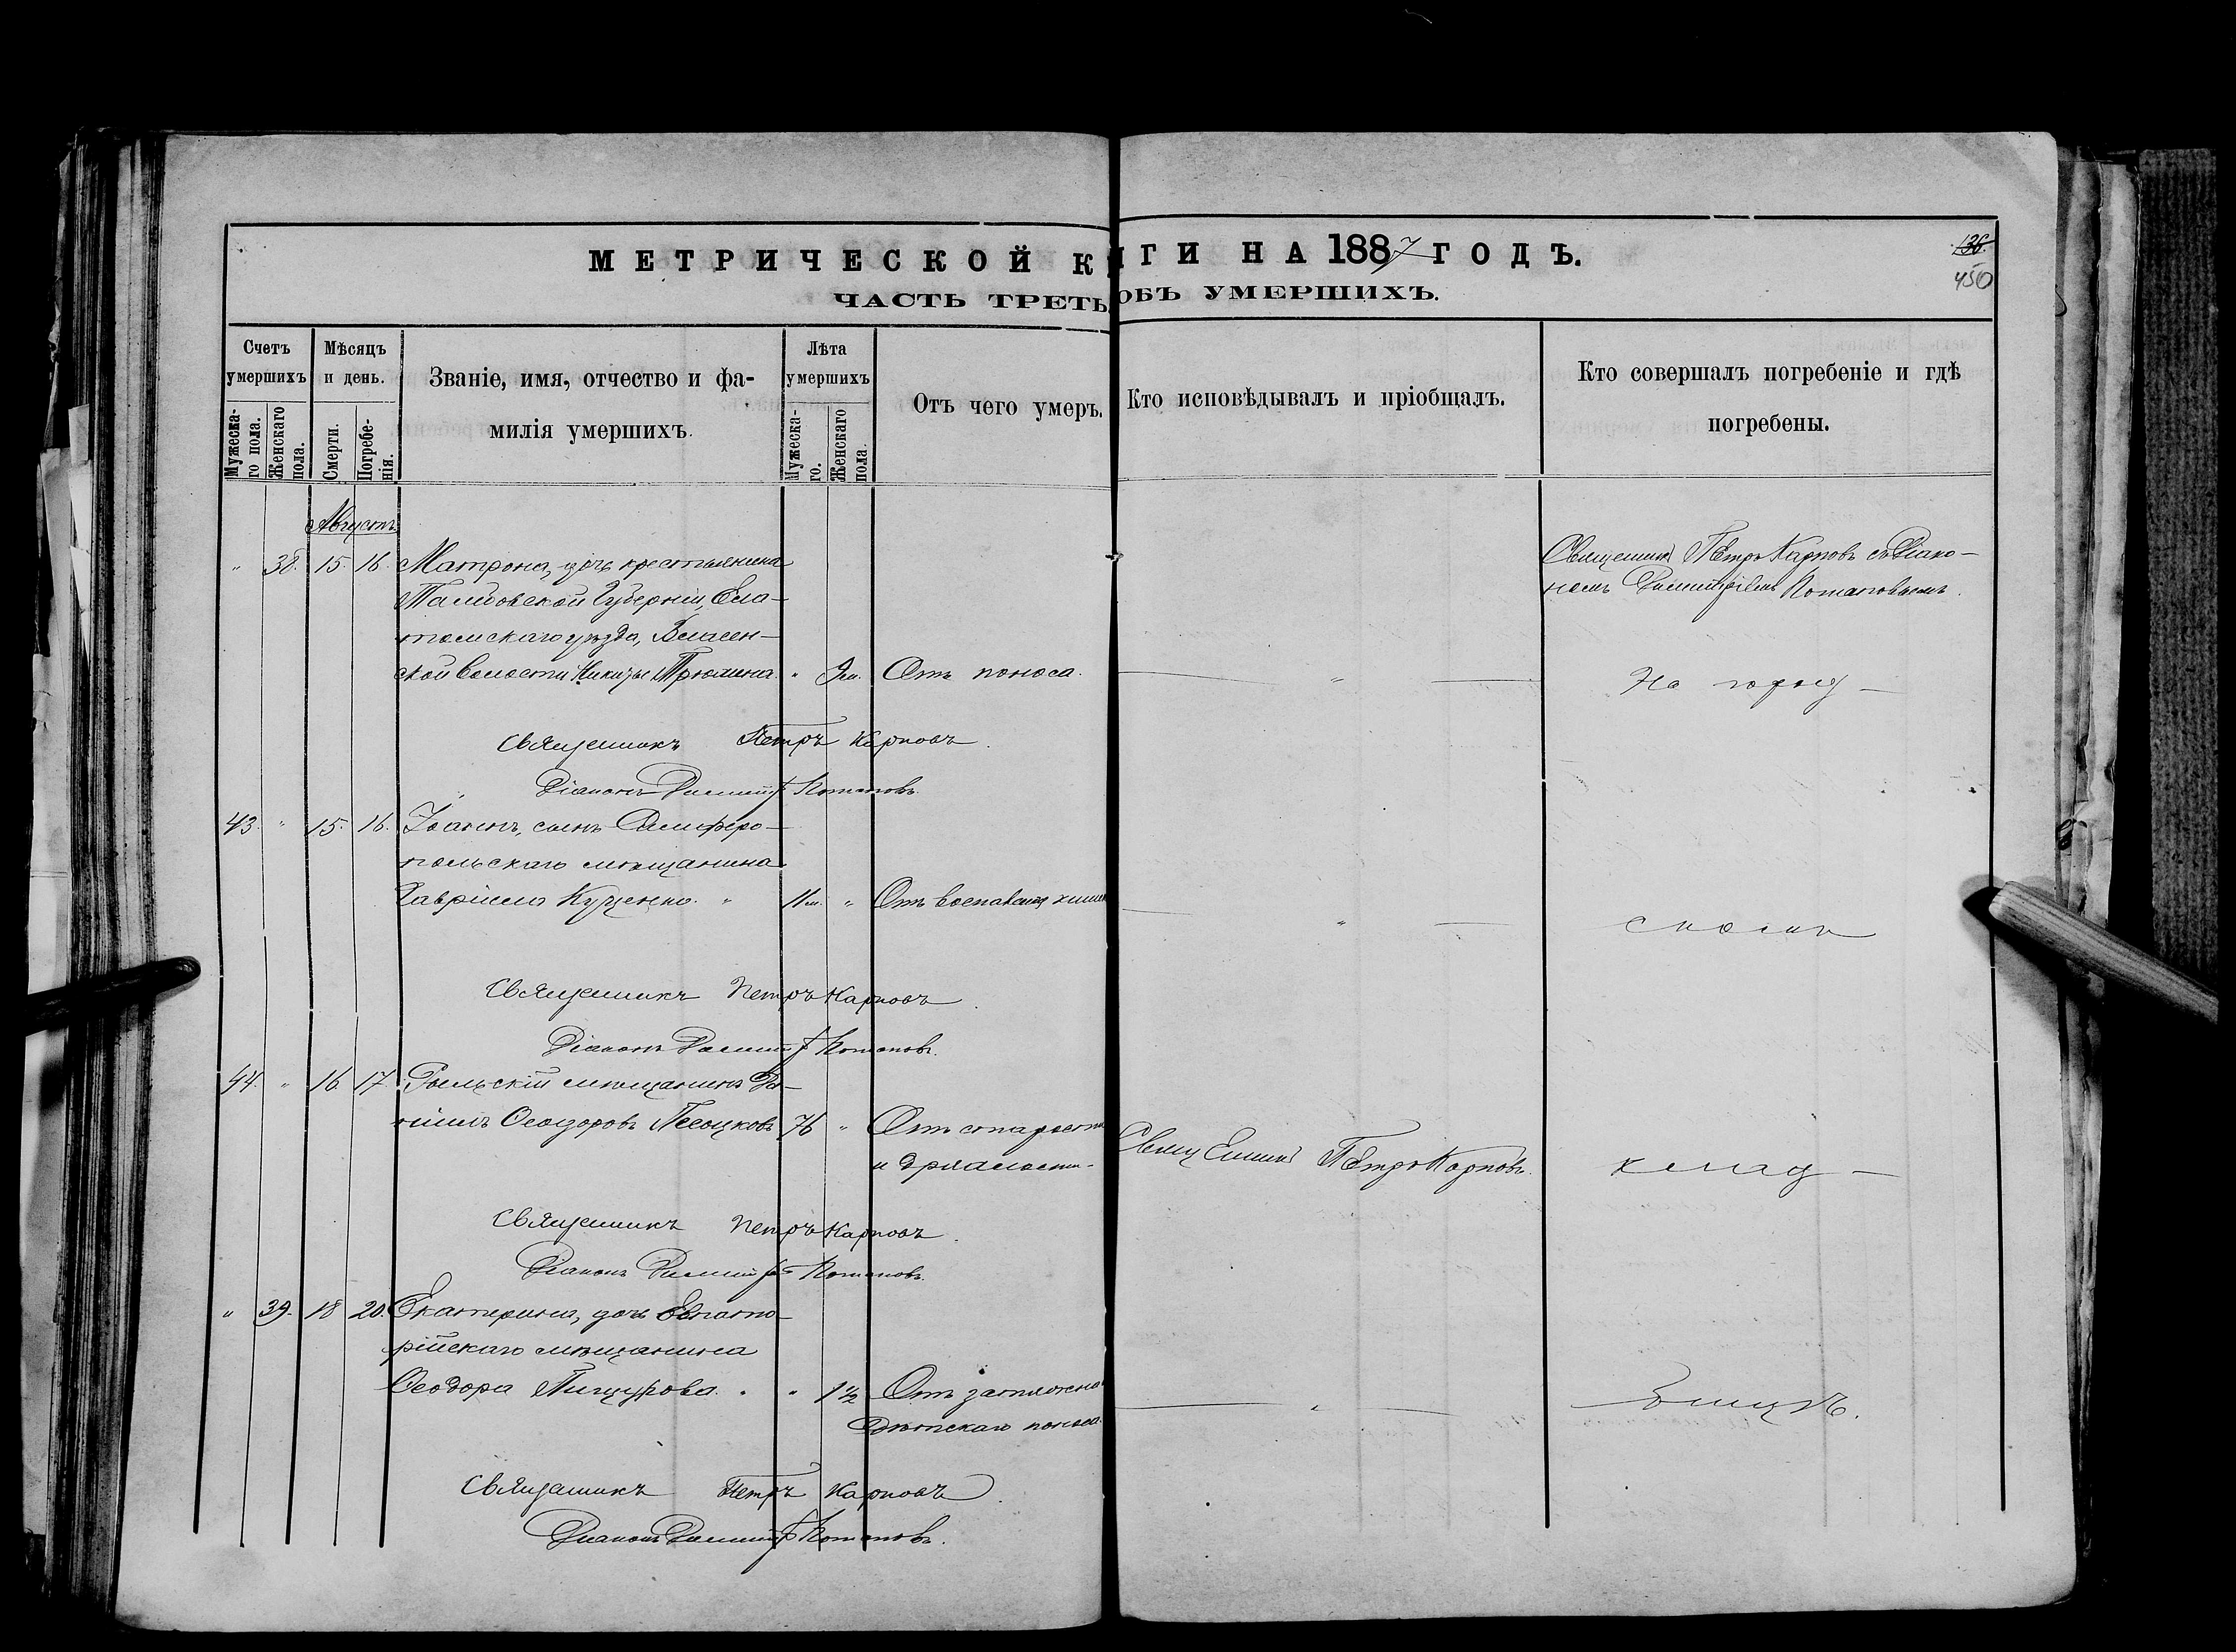 МЕТРИЧЕСКОЙ К
ЧАСТЬ ТРЕТЬ
ГИ НА 1887 ГОДЪ.
ОБЪ УМЕРШИХЪ.
138.
450
Счетъ умершихъ
Мужеска-го пола.
Женскаго пола.
Мѣсяцъ и день.
Смерти.
Погребе-нія.
Званіе, имя, отчество и фа-
милія умершихъ.
Лѣта умершихъ
Мужеска-го.
Женскаго пола.
Отъ чего умеръ.
Кто исповѣдывалъ и пріобщалъ.
Кто совершалъ погребеніе и гдѣ
погребены.
Августъ
" 38. 15. 16. Матрона, дочь крестьянина
Тамбовской Губерніи, Ела-
томскаго уѣзда,
ской волости Никиты Трюшина. " 9 м. Отъ поноса. "
Священникъ Петръ Карповъ съ Діако-
номъ Димитріемъ Потаповымъ.
На город-
Священникъ Петръ Карповъ.
Діаконъ Димитр Потаповъ.
43. " 15. 16. Іоаннъ, сынъ Симферо-
польскаго мѣщанина
Гавріила Куценко. " 11 м. " Отъ воспаленія кишек "
скомъ
Священникъ Петръ Карповъ.
Діаконъ Димит Потаповъ.
44. " 16. 17. Рыльскій мѣщанинъ Да-
ніилъ Ѳеодоровъ Песоцковъ 76 " Отъ старости
и дряхлости. Священникъ Петръ Карповъ.
клад-
Священникъ Петръ Карповъ.
Діаконъ Димитр Потаповъ.
" 39. 18 20. Екатерина, дочь Евпато-
рійскаго мѣщанина
Ѳеодора Пищурова. " " 1 ½ Отъ затяжно
дѣтскаго поноса. "
бищѣ.
Священникъ Петръ Карповъ.
Діаконъ Димит Потаповъ.